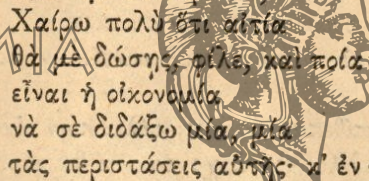 Χαίρω πολὺ ὅτι αἰτία
θὰ μὲ δώσῃς, φίλε, καὶ ποία
εἶναι ἡ οἰκονομία
νὰ σὲ διδάξω μία, μία
τὰς περιστάσεις αὐτῆς· κ' ἐν